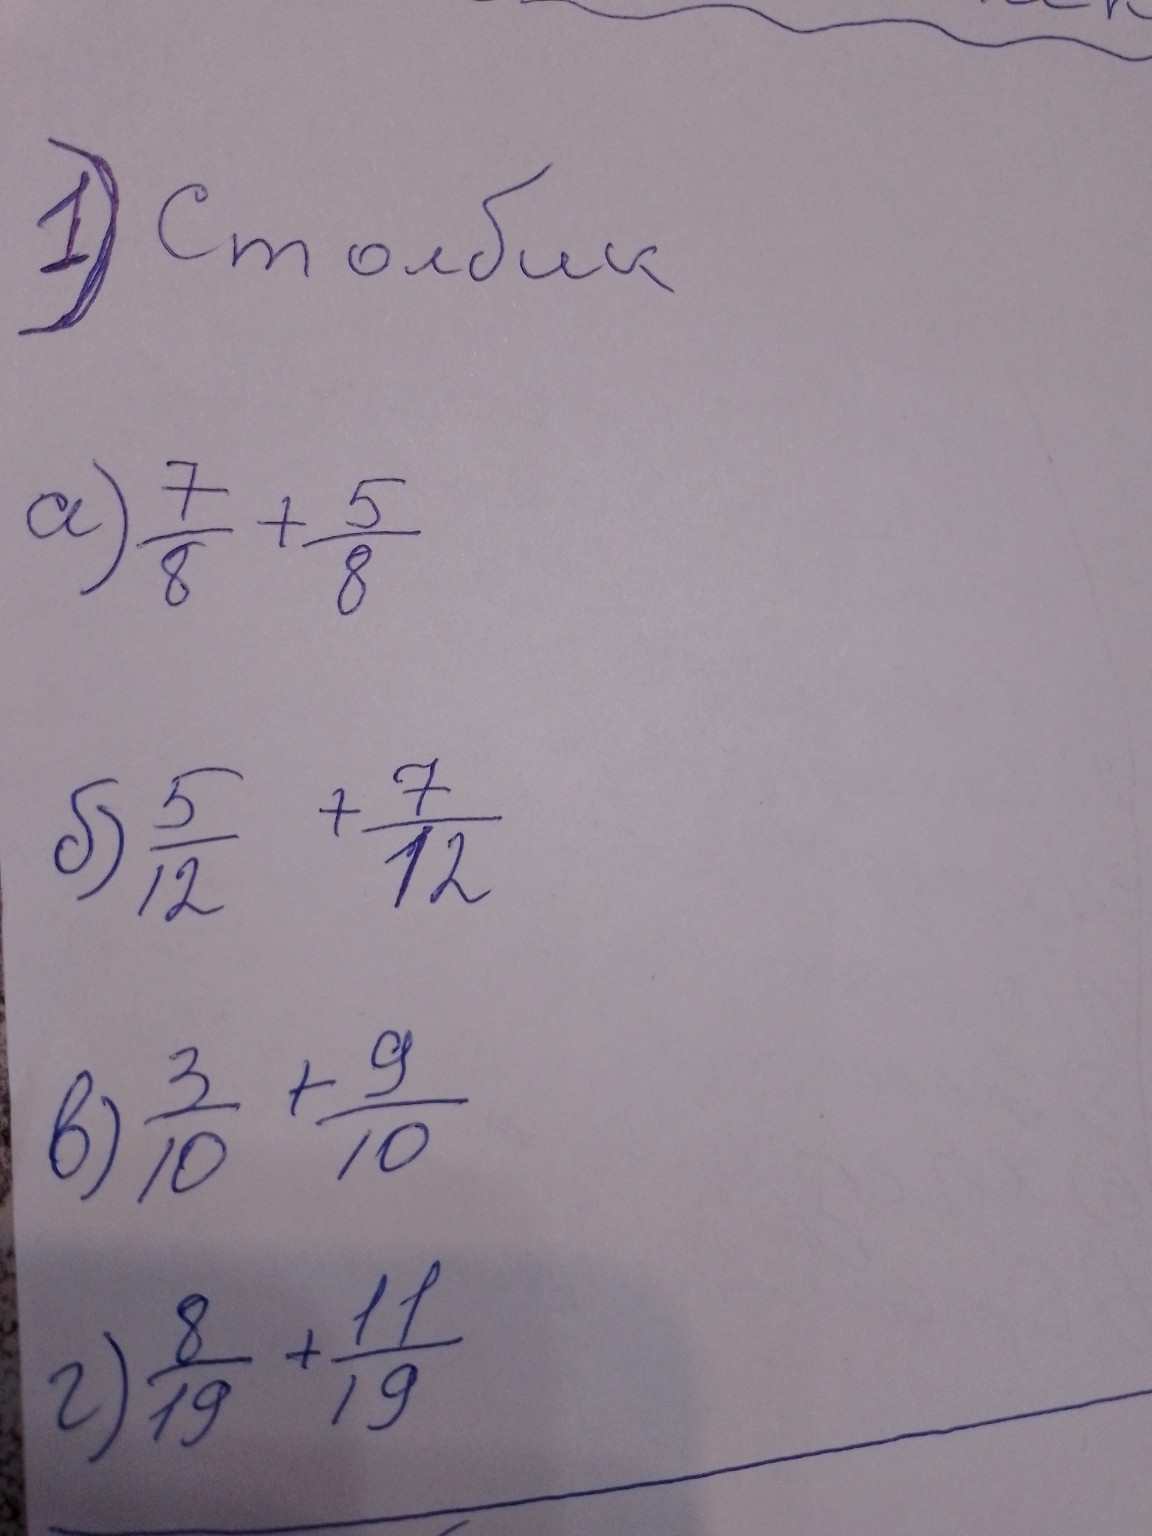 1) Столбик
а) 7/8 + 5/8
б) 5/12 + 7/12
в) 3/10 + 9/10
г) 8/19 + 11/19